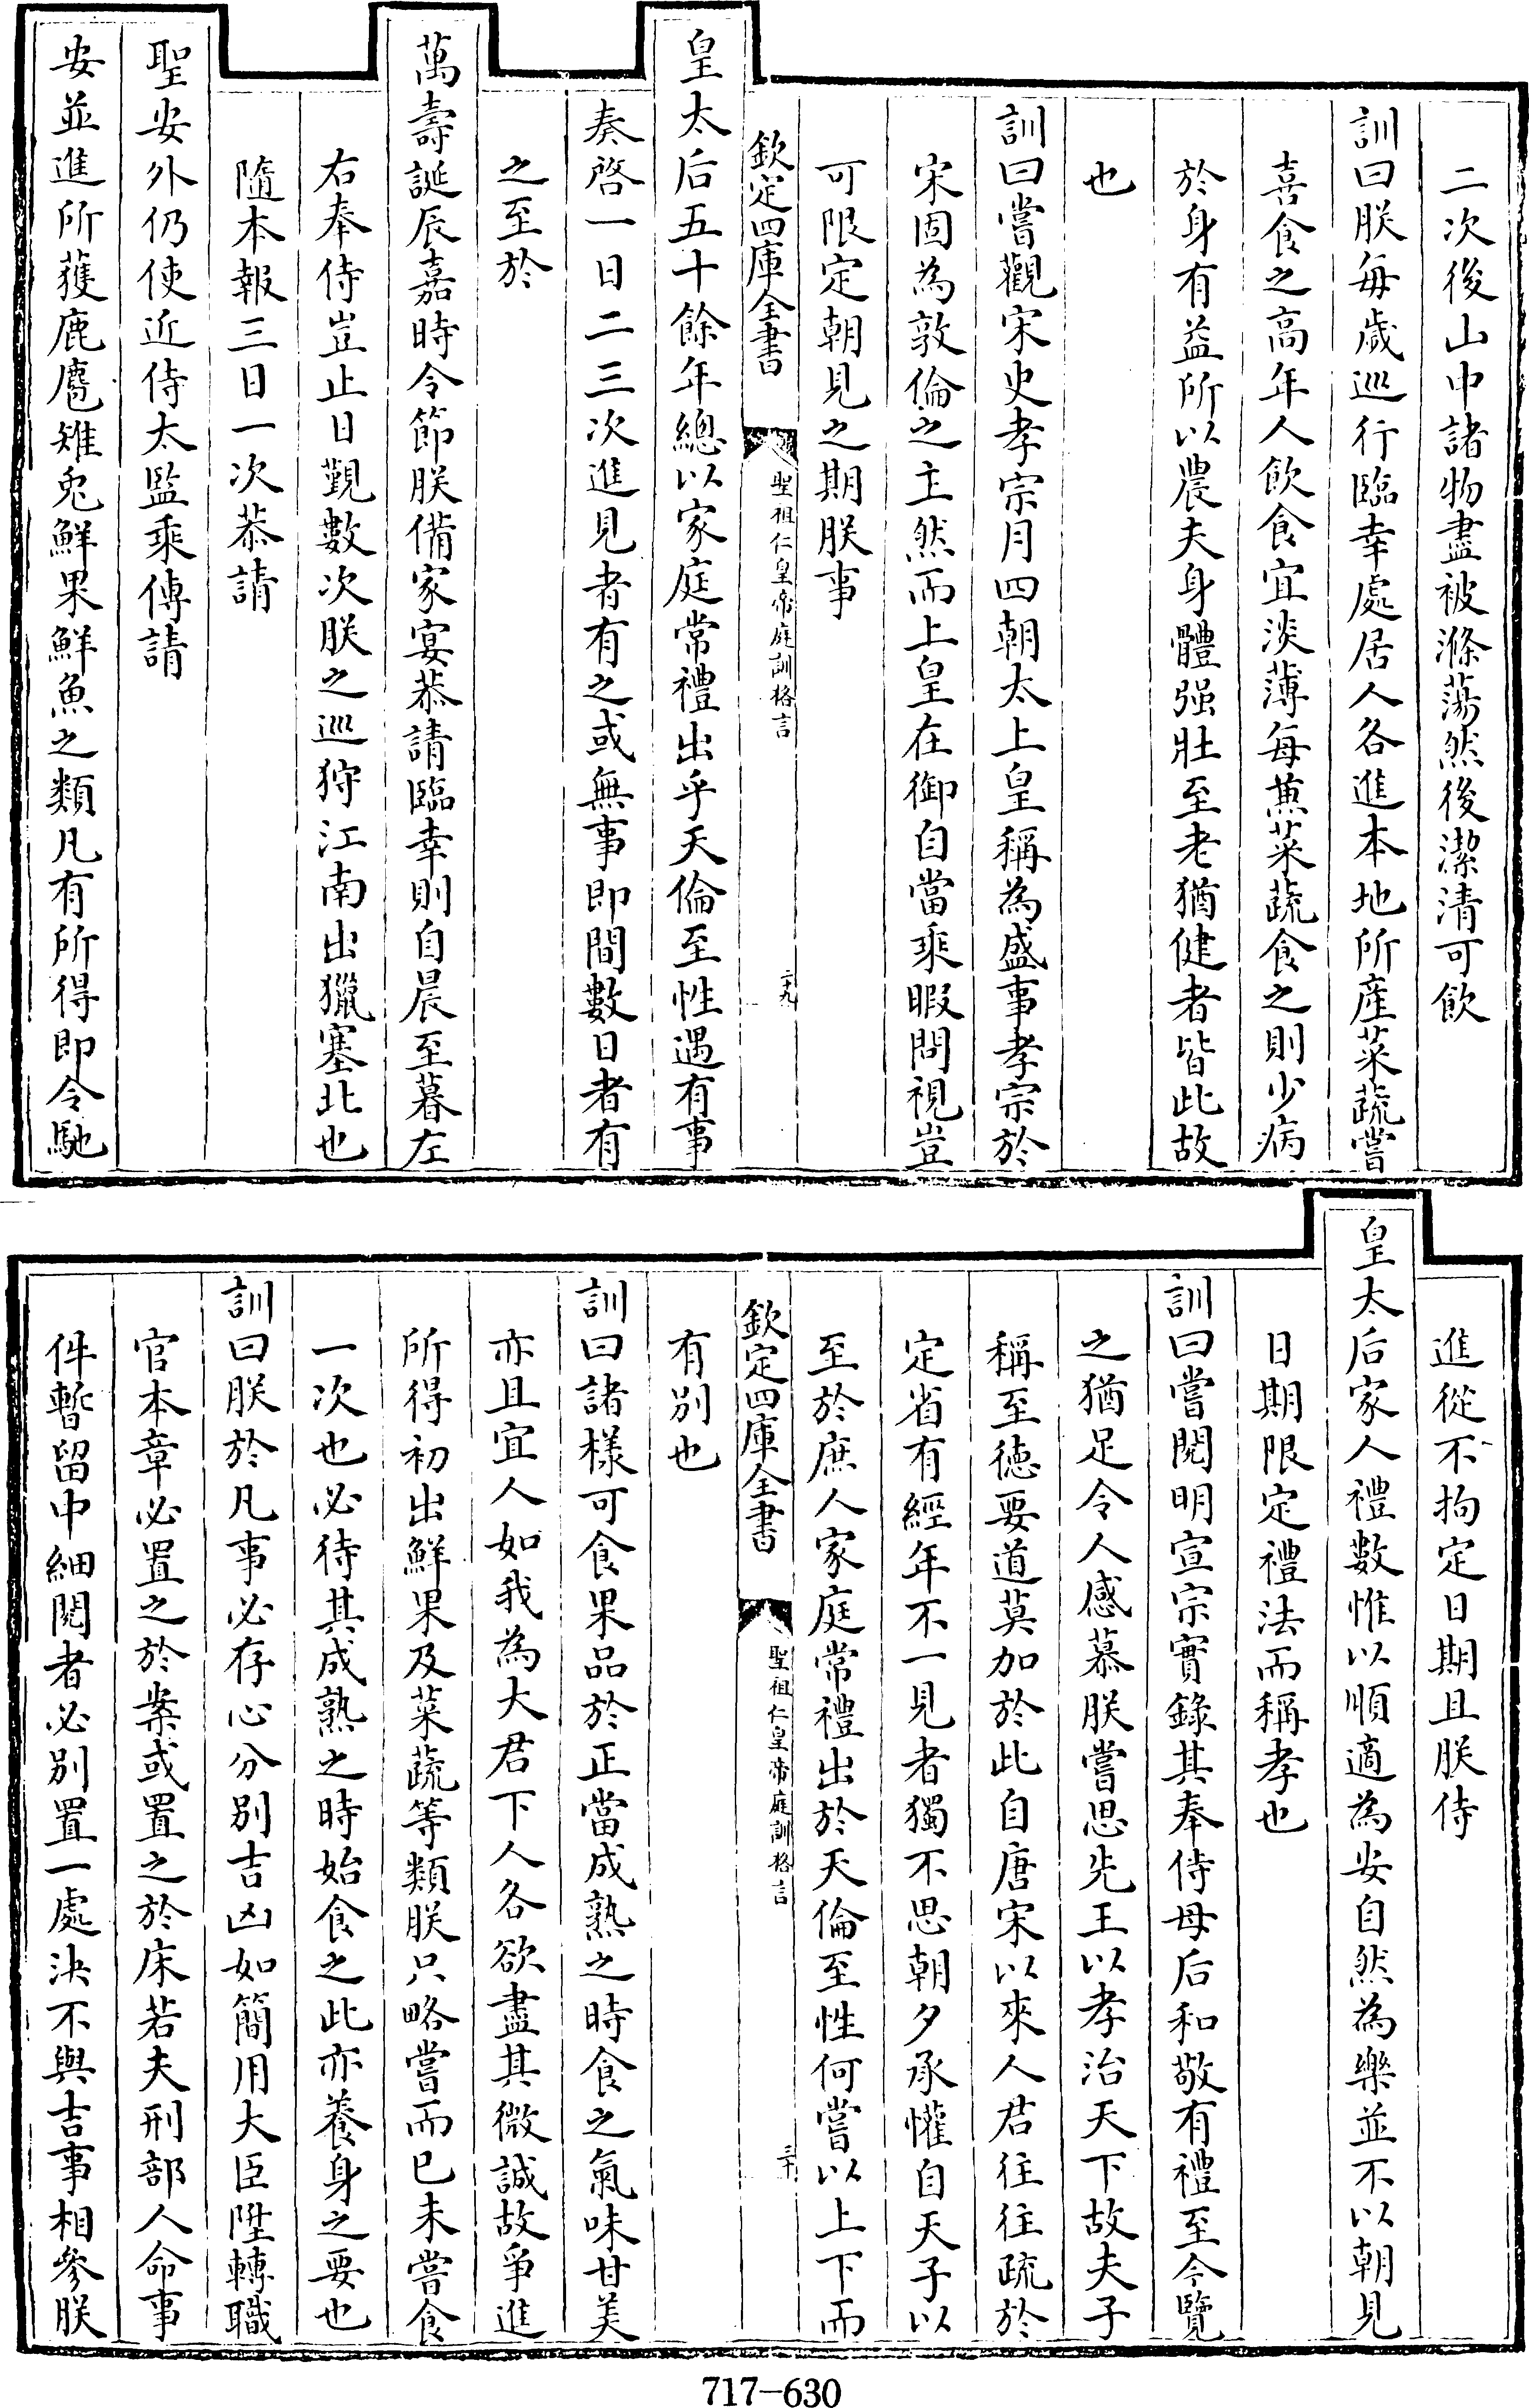 二次後山中諸物盡被滌蕩然後潔清可飲
訓曰朕每歲巡行臨幸處居人各進本地所產菜蔬嘗
喜食之高年人飲食宜淡薄每蒸菜蔬食之則少病
於身有益所以農夫身體强壯至老猶健者皆此故
也
訓曰嘗觀宋史孝宗月四朝太上皇稱為盛事孝宗於
宋固為敦倫之主然而上皇在御自當乘暇問視豈
可限定朝見之期朕事
欽定四庫全書
聖祖仁皇帝庭訓格言
二十九
皇太后五十餘年總以家庭常禮出乎天倫至性遇有事
奏啓一日二三次進見者有之或無事即間數日者有
之至於
萬壽誕辰嘉時令節朕備家宴恭請臨幸則自晨至暮左
右奉侍豈止日覲數次朕之巡狩江南出獵塞北也
隨本報三日一次恭請
聖安外仍使近侍太監乘傳請
安並進所獲鹿麅雉兎鮮果鮮魚之類凡有所得即令馳
進從不拘定日期且朕侍
皇太后家人禮數惟以順適為安自然為樂並不以朝見
日期限定禮法而稱孝也
訓曰嘗閱明宣宗實錄其奉侍母后和敬有禮至今覽
之猶足令人感慕朕嘗思先王以孝治天下故夫子
稱至德要道莫加於此自唐宋以來人君往往疏於
定省有經年不一見者獨不思朝夕承懽自天子以
至於庶人家庭常禮出於天倫至性何嘗以上下而
欽定四庫全書
聖祖仁皇帝庭訓格言
三十
有別也
訓曰諸樣可食果品於正當成熟之時食之氣味甘美
亦且宜人如我為大君下人各欲盡其微誠故爭進
所得初出鮮果及菜蔬等類朕只略嘗而已未嘗食
一次也必待其成熟之時始食之此亦養身之要也
訓曰朕於凡事必存心分別吉凶如簡用大臣陞轉職
官本章必置之於案或置之於床若夫刑部人命事
件暫留中細閱者必別置一處決不與吉事相參朕
717-630